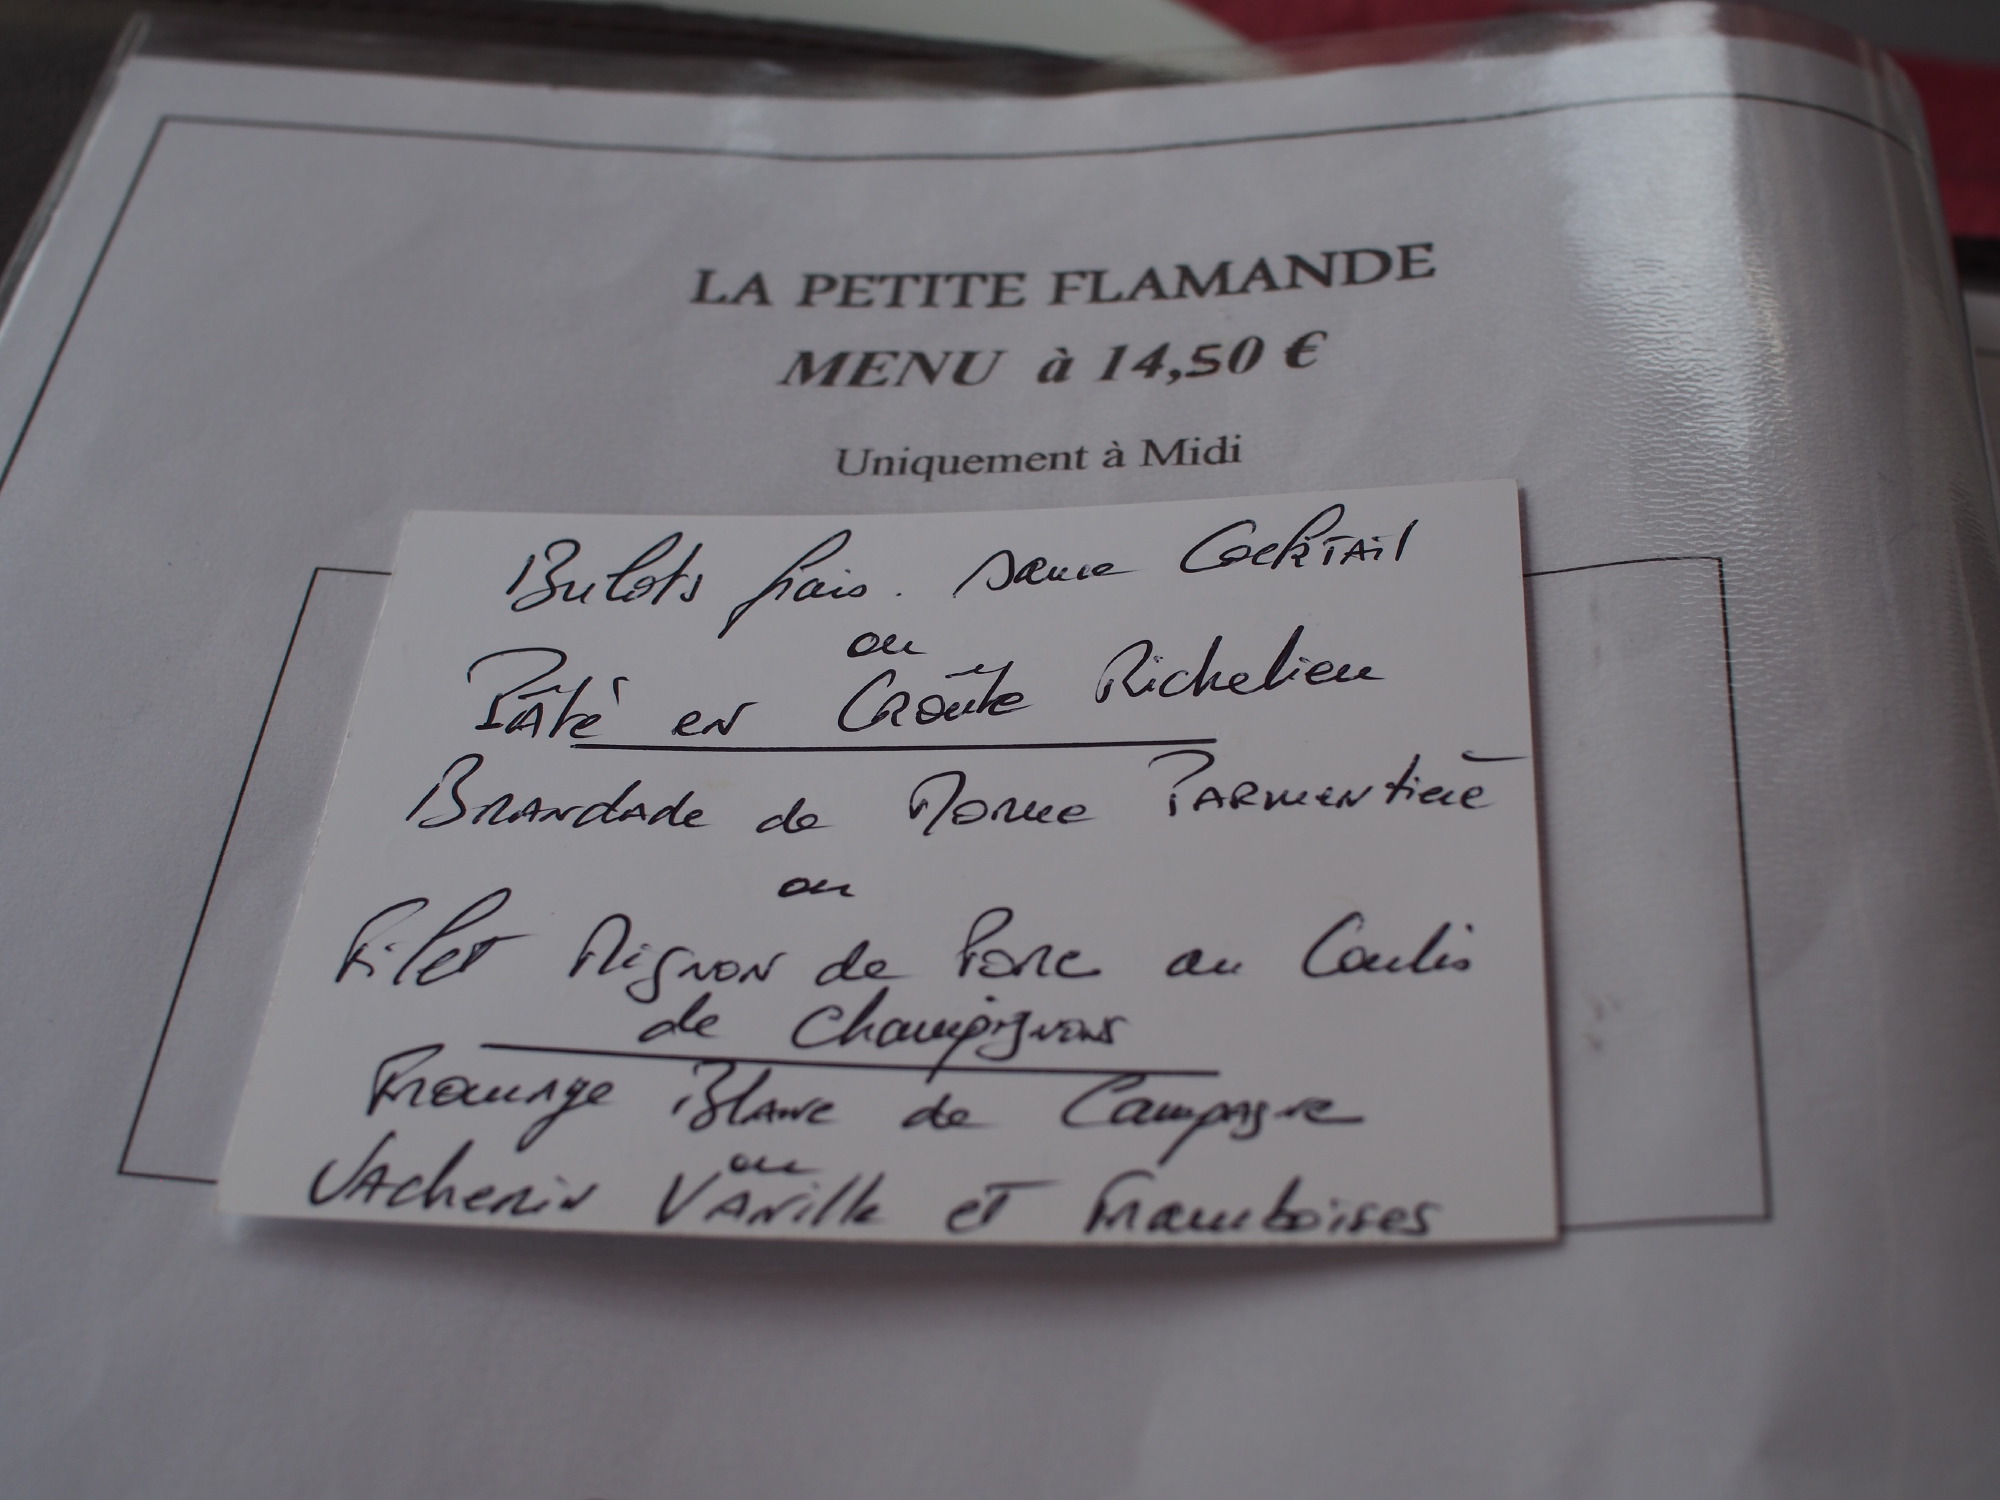 LA PETITE FLAMANDE
MENU à 14,50 €
Uniquement à Midi
Bulots frais. Sauce Cocktail
ou
Pâté en Croûte Richelieu
Brandade de Morue Parmentière
ou
Filet Mignon de Porc au Coulis
de Champignons
Fromage Blanc de Campagne
ou
Vacherin Vanille et Framboises